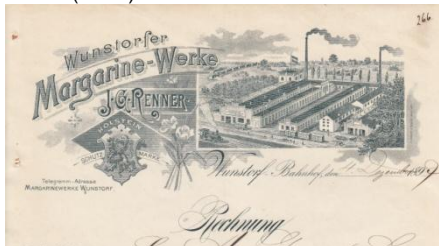 266
Wunstorfer
Margarine-Werke
J.G. RENNER.
SCHUTZ MARKE
Telegramm-Adresse
MARGARINEWERKE WUNSTORF.
Wunstorf-Bahnhof, den
Rechnung